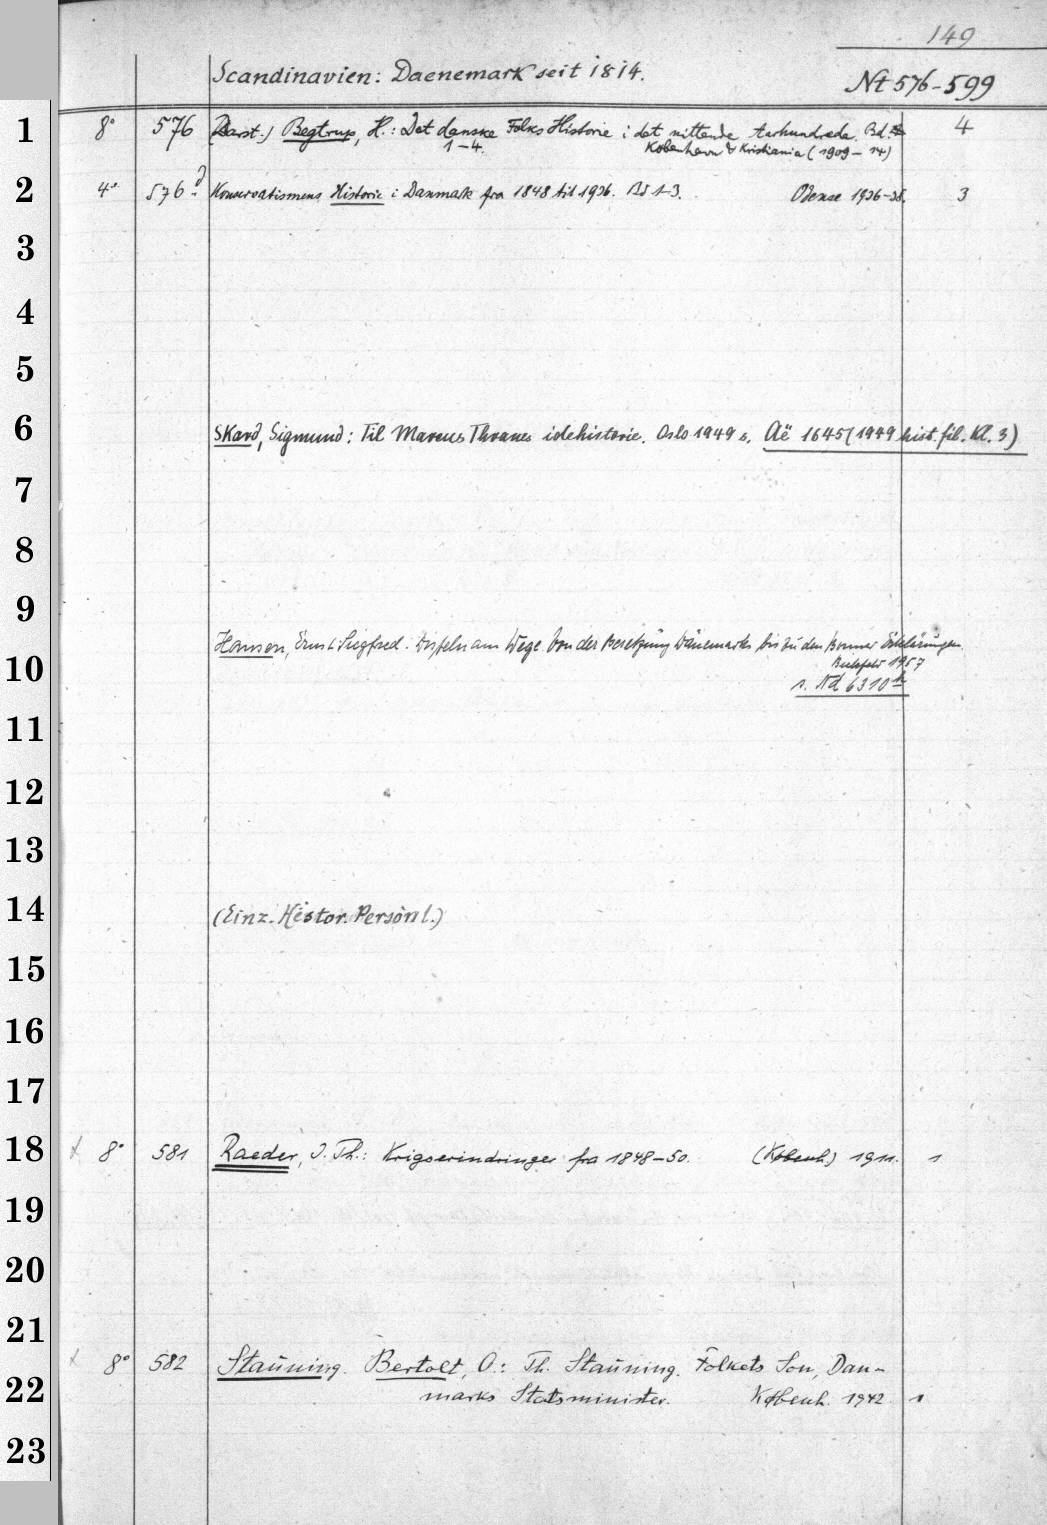 149
Scandinavien: Daenemark seit 1814.
Nt 576-599
1 8° 576 (Darst.) Begtrup, H.: Det danske Folks Historie i det nittende Aarhundrede. Bd. 4
1-4. København & Kristiania (1909-14)
2 4° 576 d Konservatismens Historie i Danmark fra 1848 til 1936. Bd 1-3. Odense 1936-38. 3
3
4
5
6 Skard, Sigmund: Til Marcus Thranes idehistorie. Oslo 1949 s. Aë 1645 (1949 hist. fil. Kl. 3)
7
8
9
Hansen, Ernst Siegfred. Disteln am Wege. Von der Besetzung Dänemarks bis zu den Bonner Erklärungen.
10 Bielefeld 1957
s. Nd 6310
11
12
13
14 (Einz. Histor. Persönl.)
15
16
17
18 8° 581 Raeder, J. Th.: Krigserindringer fra 1848-50. (Københ.) 1911. 1
19
20
21
8° 582 Stauning. Bertolt, O.: Th. Stauning. Folkets Son, Dan-
22 marks Statsminister. Københ. 1942 1
23